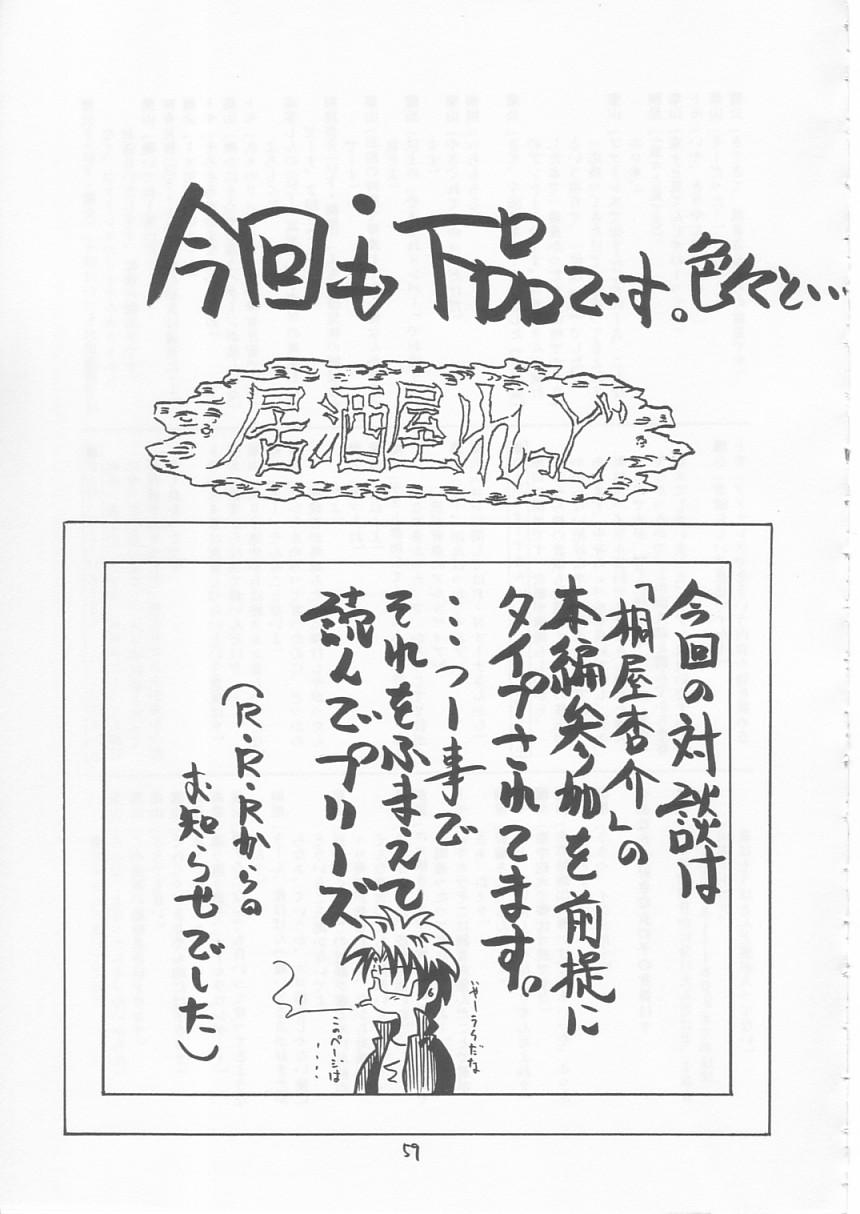 今回も下品です。色々と…
居酒屋れっど
今回の対談は
「桐屋杏介」の
本編参加を前提に
タイプされてます。
…つー事で
それをふまえて
読んでプリーズ
(R・R・Rからの
お知らせでした)
このページは
‥‥
59